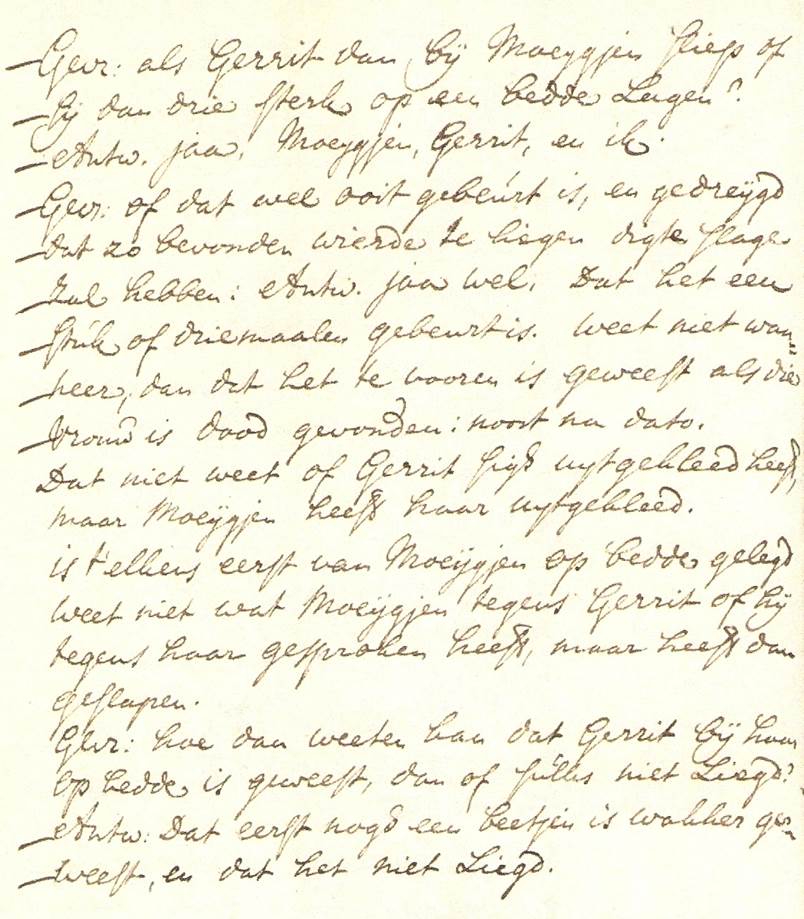 Gevr: als Gerrit dan bij Moeygjen sliep of
sij dan drie sterk op een bedde Lagen?
Antw. jaa, Moeygjen, Gerrit, en ik.
Gevr: of dat wel ooit gebeurt is, en gedreijgd
dat zo bevonden wierde te liegen digte slage
zal hebben: Antw. jaa wel, Dat het een
stuk of driemaalen gebeurt is. weet niet wan=
neer, dan dat het te vooren is geweest als die
vrouw is dood gevonden: noort na dato.
Dat niet weet of Gerrit sigh uytgekleed heeft,
maar Moeijgjen heeft haar uytgekleed.
is t'elkens eerst van Moeijgjen op bedde gelegd
weet niet wat Moeijgjen tegens Gerrit of hij
tegens haar gesproken heeft, maar heeft dan
geslapen.
Gevr: hoe dan weeten kan dat Gerrit bij haar
op bedde is geweest, dan of sulks niet Liegd?
Antw: Dat eerst nogh een beetjen is wakker ge=
weest, en dat het niet Liegd.